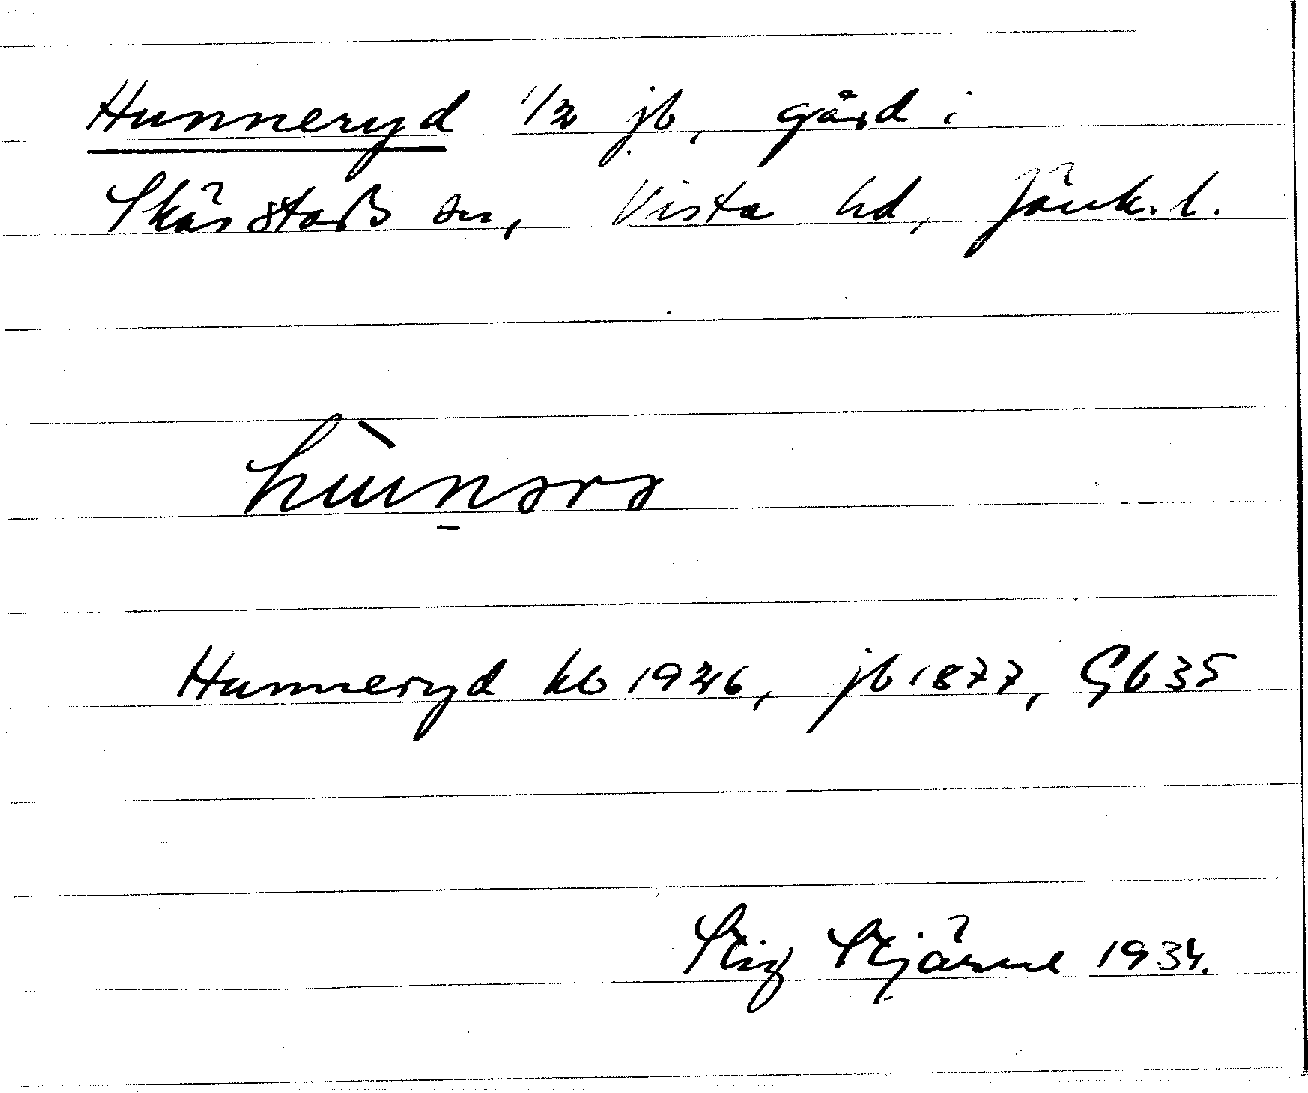 Hunneryd 1/2 jb, gård i
Skärstads sn, Vista hd, Jönk. l.
Hunneryd kb 1926, jb 1877, Gb 35
Stig Stjärne 1934.